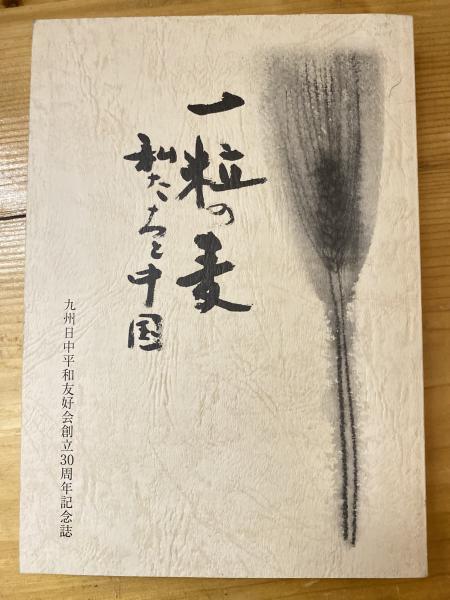 一粒の麦
私たちと中国
九州日中平和友好会創立30周年記念誌